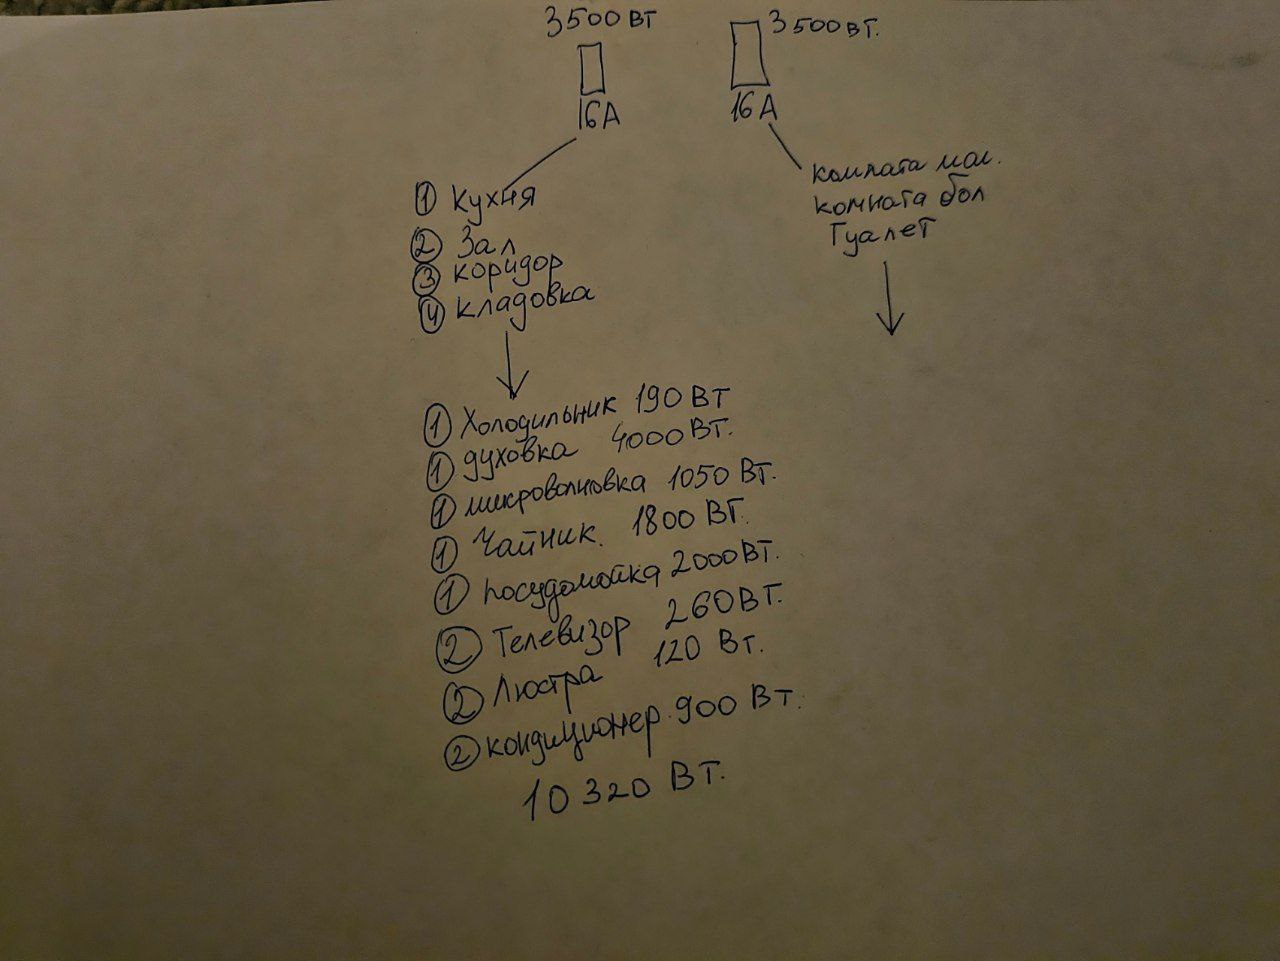 3500 Вт 3500 Вт.
16А 16А
① Кухня
② Зал
③ коридор
④ кладовка
комната мал.
комната бол
Туалет
① Холодильник 190 Вт
① духовка 4000 Вт.
① микроволновка 1050 Вт.
① Чайник. 1800 Вт.
① посудомойка 2000 Вт.
② Телевизор 260 Вт.
② Люстра 120 Вт.
② кондиционер. 900 Вт.
10 320 Вт.